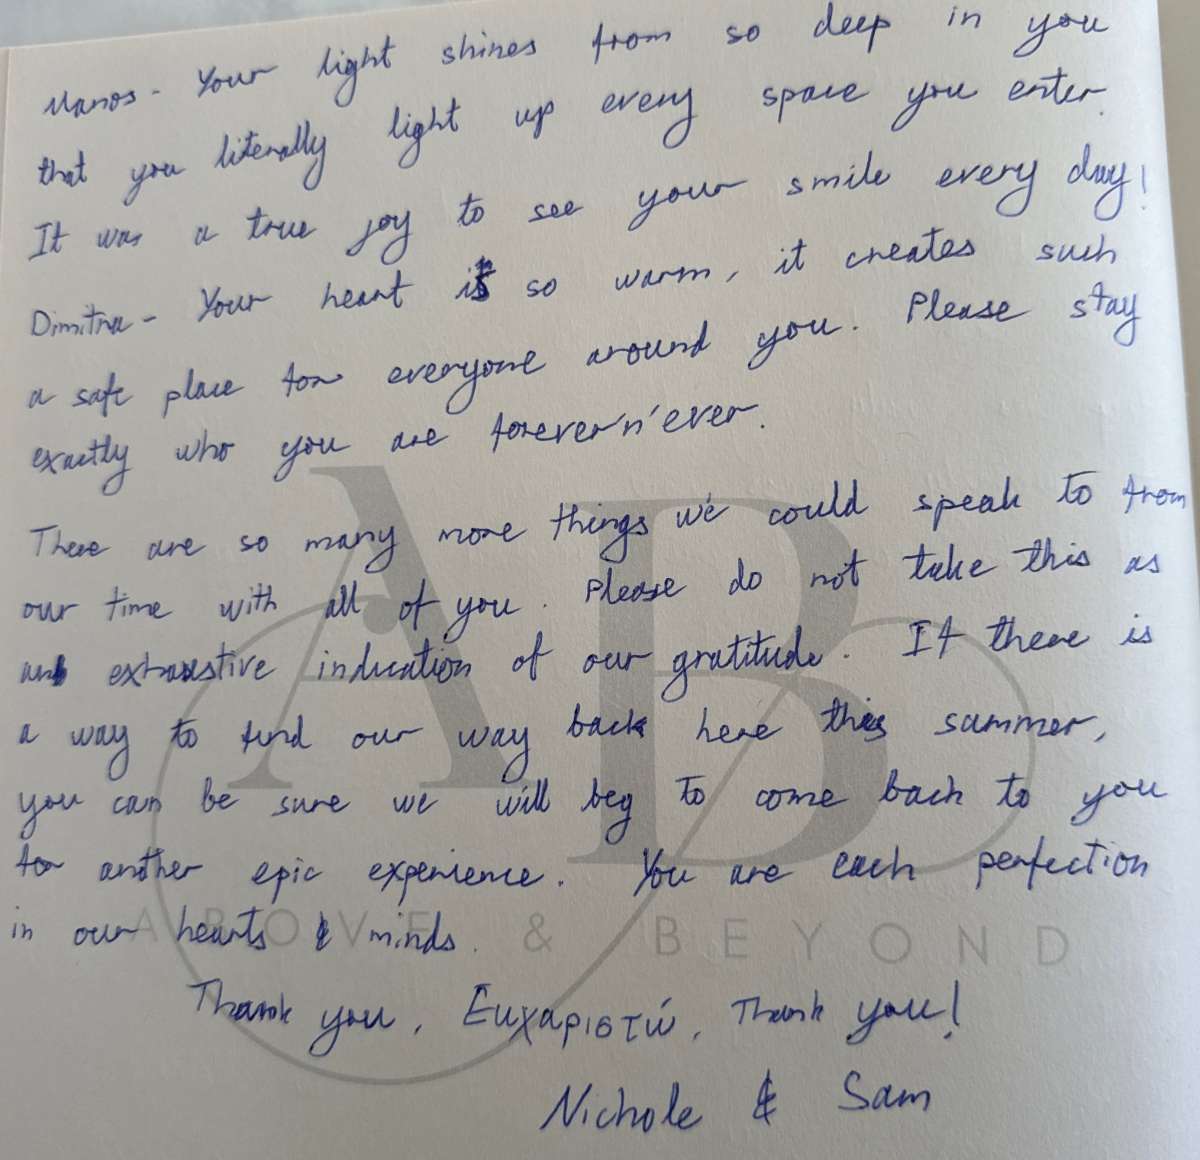 Manos - Your light shines from so deep in you
that you literally light up every space you enter.
It was a true joy to see your smile every day!
Dimitra - Your heart is so warm, it creates such
a safe place for everyone around you. Please stay
exactly who you are forever n' ever.
There are so many more things we could speak to from
our time with all of you. Please do not take this as
an exhaustive indication of our gratitude. If there is
a way to find our way back here this summer,
you can be sure we will beg to come back to you
for another epic experience. You are each perfection
in our hearts & minds.
ABOVE & BEYOND
Thank you, Ευχαριστώ, Thank you!
Nichole & Sam
AB